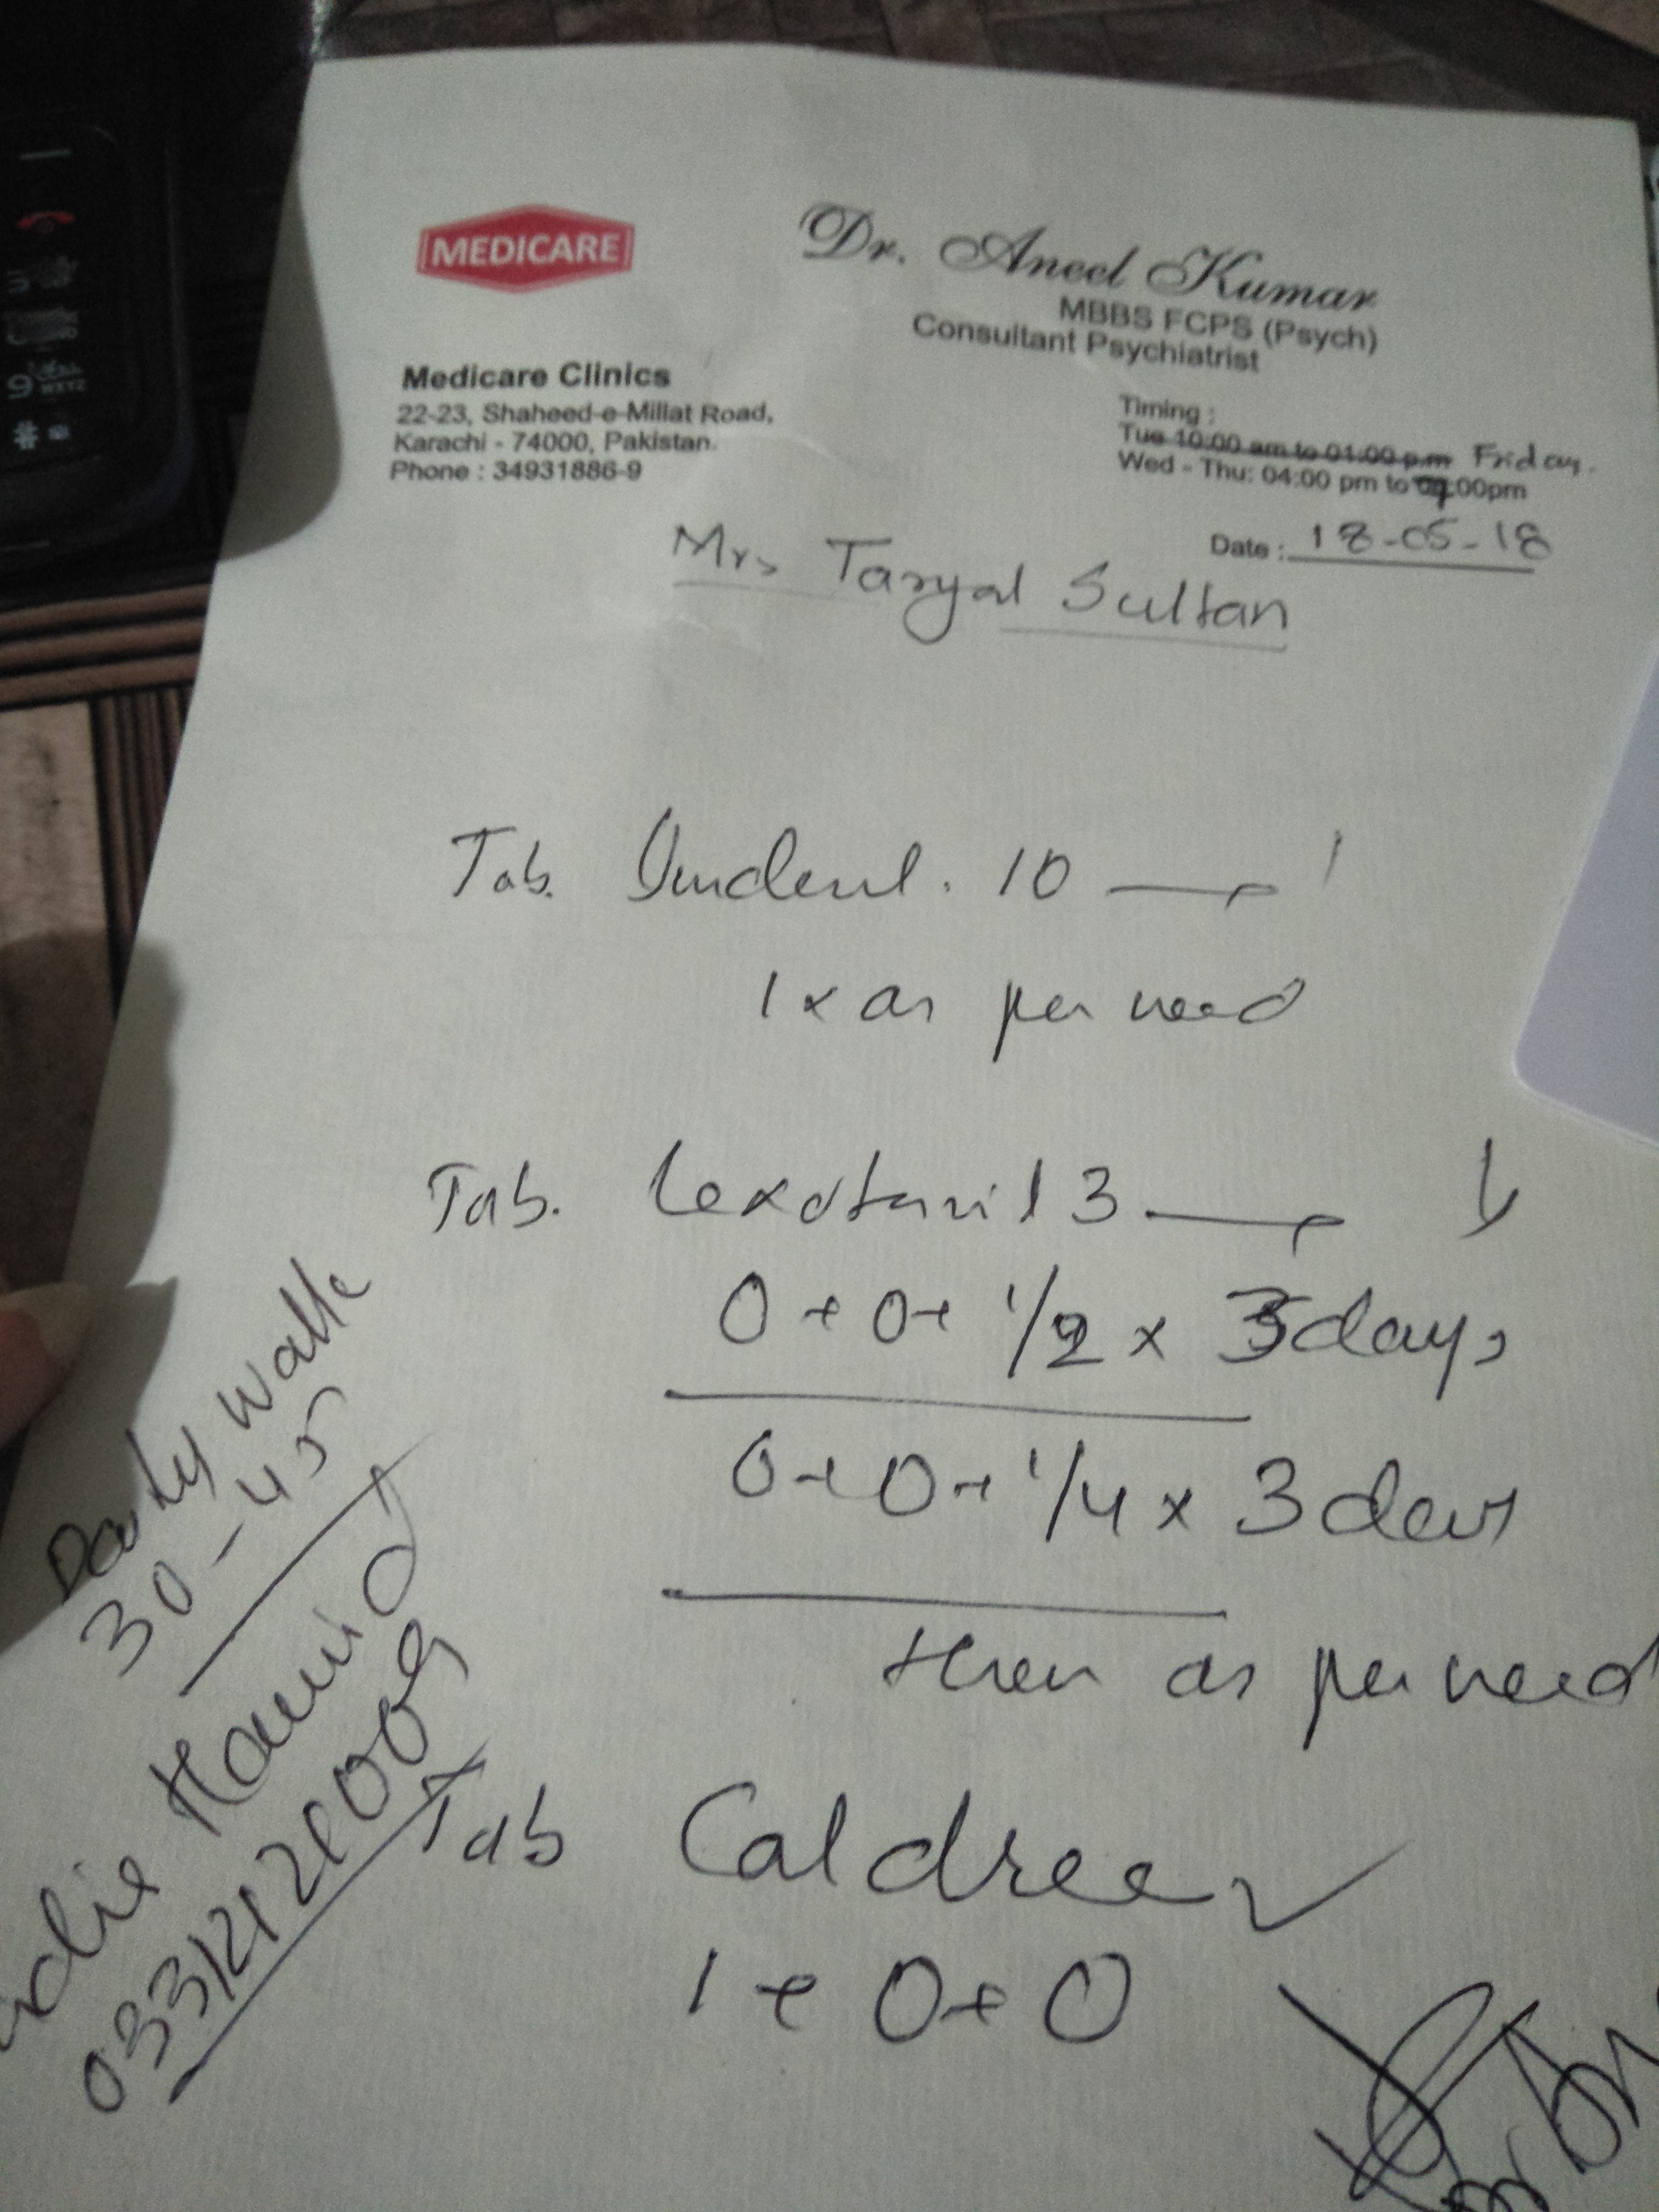 MEDICARE
Dr. Aneel Kumar
MBBS FCPS (Psych)
Consultant Psychiatrist
Medicare Clinics
22-23, Shaheed-e-Millat Road,
Karachi - 74000, Pakistan.
Phone : 34931886-9
Timing :
Tue 10:00 am to 01:00 p.m Friday.
Wed - Thu: 04:00 pm to :00pm
Date : 18-05-18
Mrs Sultan
Tab. 10
1 x as per need
Tab. Lexotanil 3
0 + 0 + 1/2 x days
0 + 0 + 1/4 x 3 days
then as per need
Tab
1 + 0 + 0
Daily walk
30 - 45
Hamid
9
WXYZ
#